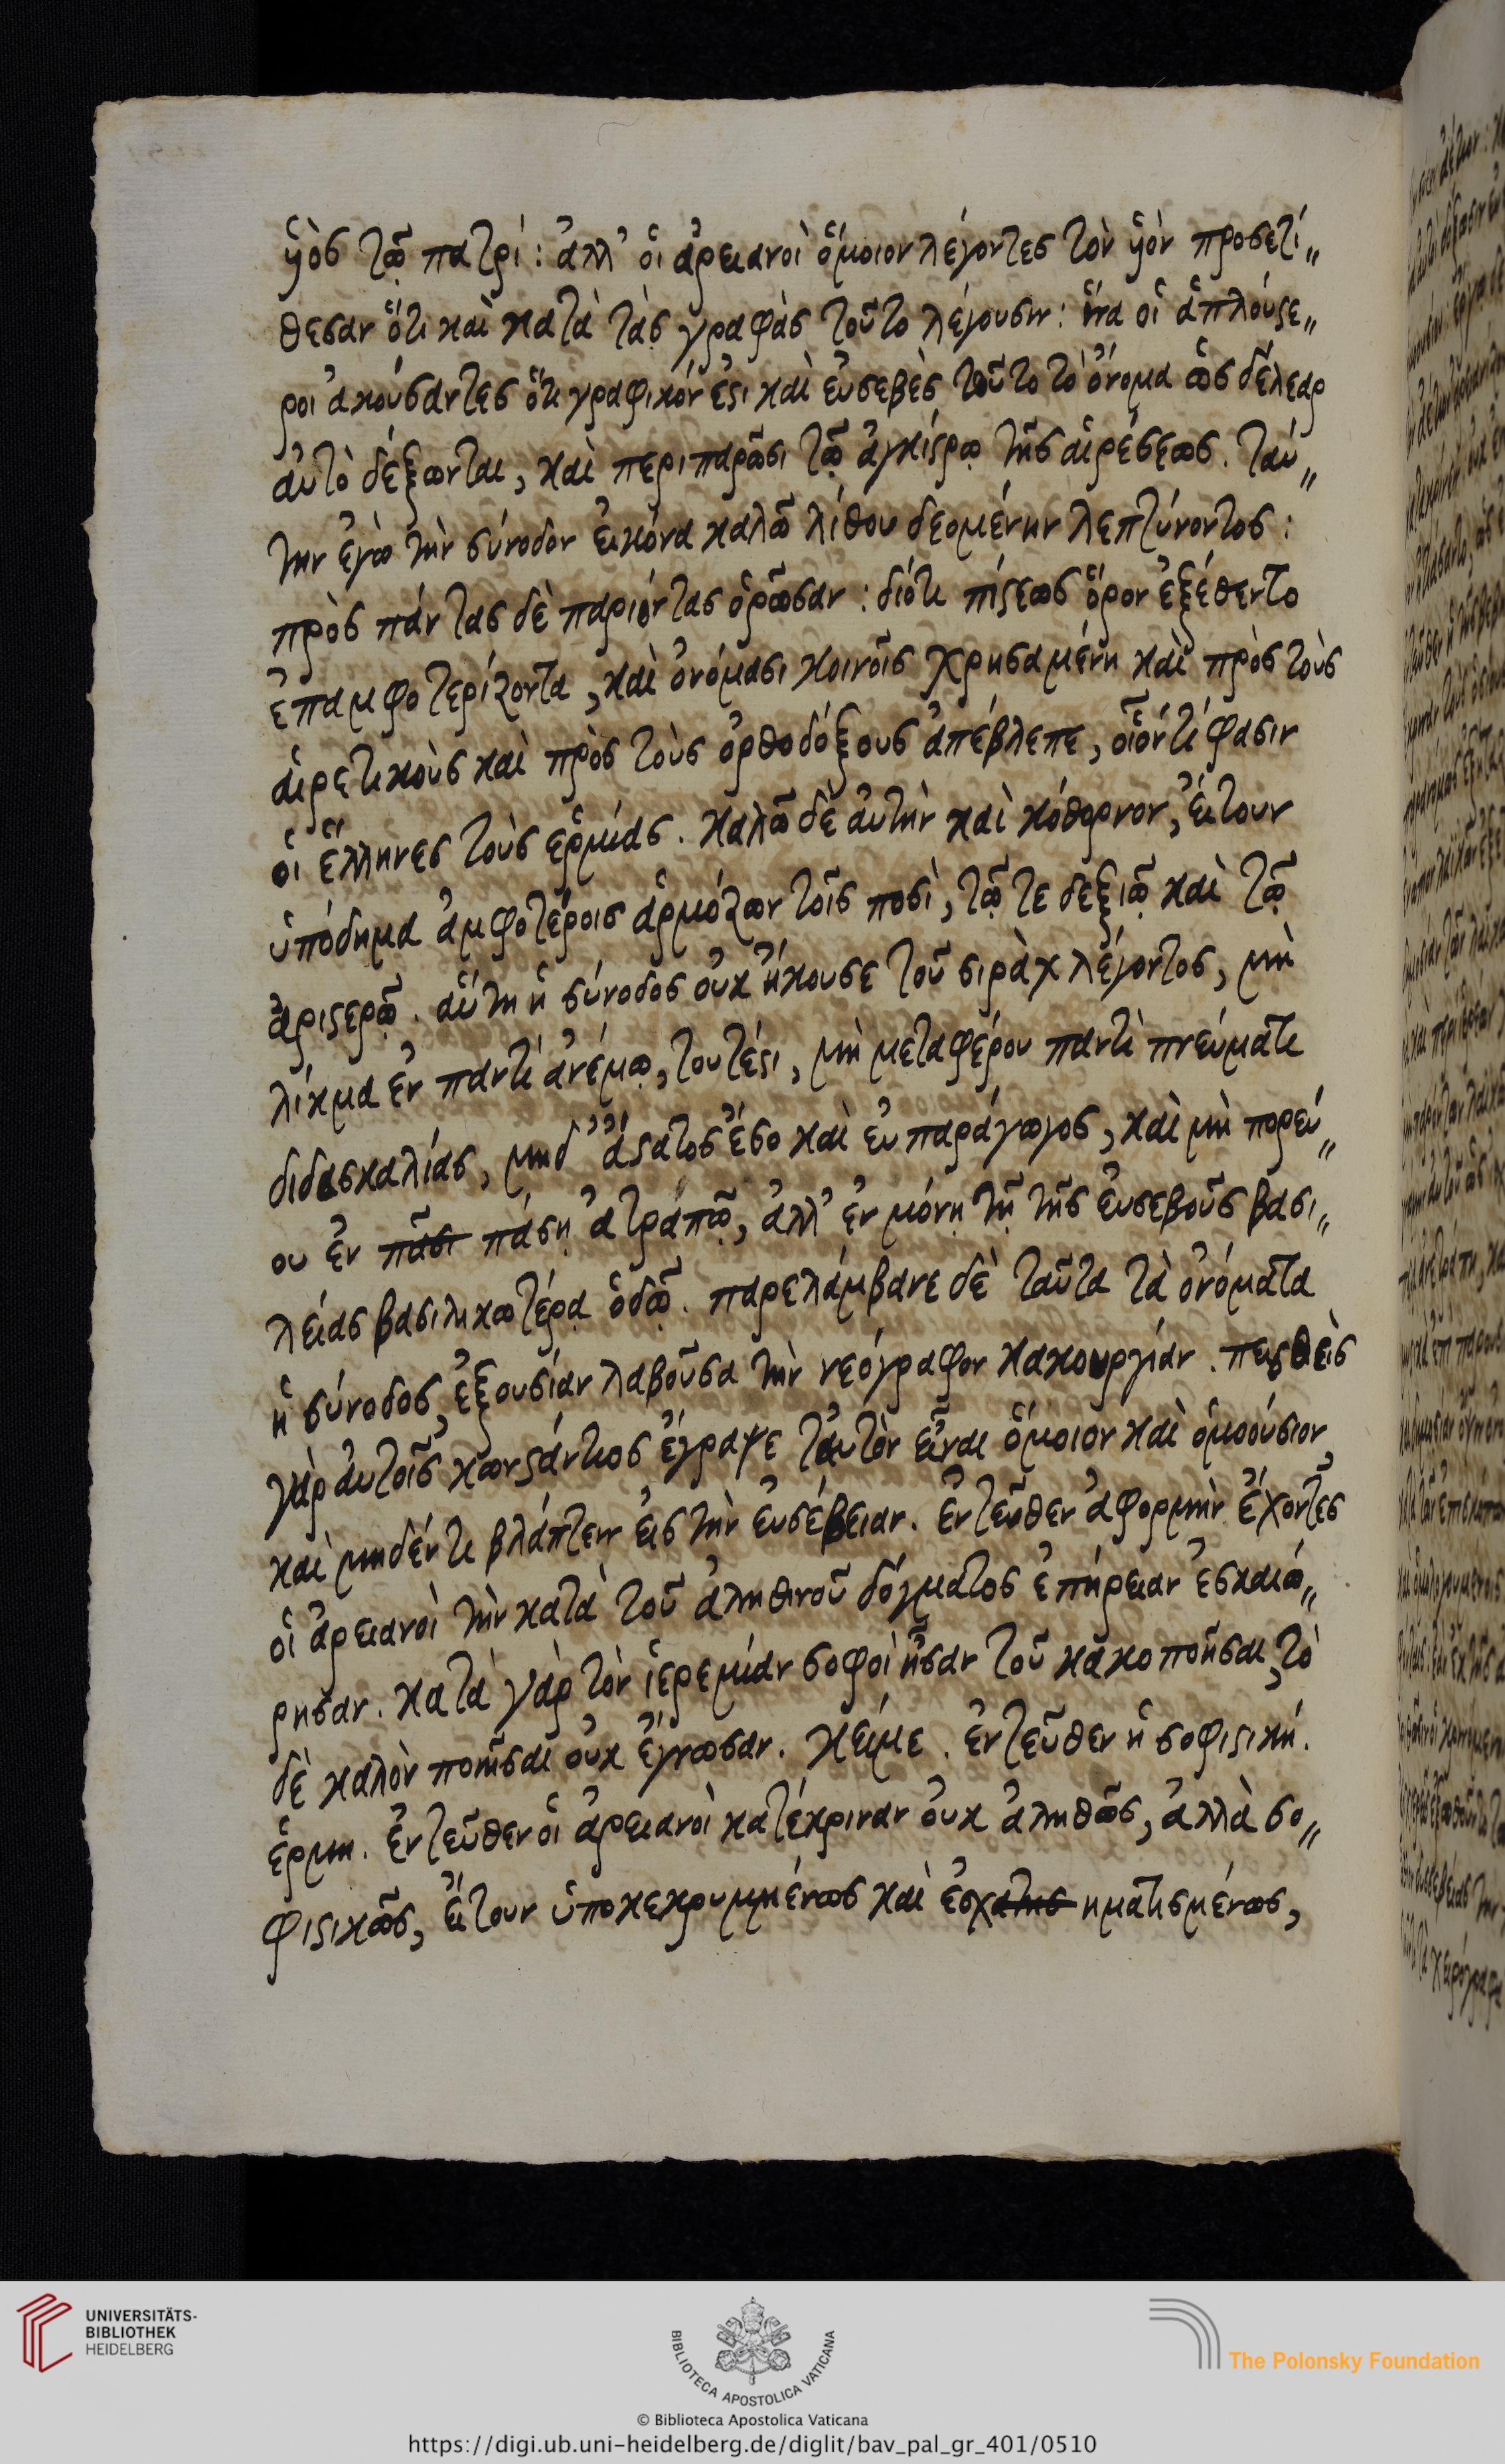 ὑὸς τῷ πατρί: ἀλλ' οἱ ἀρειανοὶ ὅμοιον λέγοντες τὸν ὑὸν προσετί〃
θεσαν ὅτι καὶ κατὰ τὰς γραφὰς τοῦτο λέγουσιν: ἵνα οἱ ἁπλούστε〃
ροι ἀκούσαντες ὅτι γραφικόν ἐστι καὶ εὐσεβὲς τοῦτο τὸ ὄνομα ὡς δέλεαρ
αὐτὸ δέξωνται, καὶ περιπαρῶσι τῷ ἀγκίστρῳ τῆς αἱρέσεως. ταύ〃
την ἐγὼ τὴν σύνοδον εἰκόνα καλῶ λίθου δεομένην λεπτύνοντος:
πρὸς πάντας δὲ παριόντας ὁρῶσαν: διότι πίστεως ὅρον ἐξέθεντο
ἐπαμφοτερίζοντα, καὶ ὀνόμασι κοινοῖς χρησαμένη καὶ πρὸς τοὺς
αἱρετικοὺς καὶ πρὸς τοὺς ὀρθοδόξους ἀπέβλεπε, οἷόν τί φασιν
οἱ ἕλληνες τοὺς ἑρμείας. καλῶ δὲ αὐτὴν καὶ κόθορνον, εἴτουν
ὑπόδημα ἀμφοτέροις ἁρμόζων τοῖς ποσὶ, τῷ τε δεξιῷ καὶ τῷ
ἀριστερῷ. αὕτη ἡ σύνοδος οὐκ ἤκουσε τοῦ σιρὰχ λέγοντος, μὴ
λίκμα ἐν παντὶ ἀνέμῳ, τουτέστι, μὴ μεταφέρου παντὶ πνεύματι
διδασκαλίας, μηδ' ἄστατος ἔσο καὶ εὐπαράγωγος, καὶ μὴ πορεύ〃
ου ἐν πᾶσι πάσῃ ἀτραπῷ, ἀλλ' ἐν μόνῃ τῇ τῆς εὐσεβοῦς βασι〃
λείας βασιλικωτέρᾳ ὁδῷ. παρελάμβανε δὲ ταῦτα τὰ ὀνόματα
ἡ σύνοδος, ἐξουσίαν λαβοῦσα τὴν νεόγραφον κακουργίαν. πεισθεὶς
γὰρ αὐτοῖς κωνστάντιος ἔγραψε ταὐτὸν εἶναι ὅμοιον καὶ ὁμοούσιον,
καὶ μηδέν τι βλάπτειν εἰς τὴν εὐσέβειαν. ἐντεῦθεν ἀφορμὴν ἔχοντες
οἱ ἀρειανοὶ τὴν κατὰ τοῦ ἀληθινοῦ δόγματος ἐπήρειαν ἐσκαιώ〃
ρησαν. κατὰ γὰρ τὸν ἱερεμίαν σοφοὶ ἦσαν τοῦ κακοποιῆσαι, τὸ
δὲ καλὸν ποιῆσαι οὐκ ἔγνωσαν. κείμε. ἐντεῦθεν ἡ σοφιστική.
ἑρμη. ἐντεῦθεν οἱ ἀρειανοὶ κατέκριναν οὐκ ἀληθῶς, ἀλλὰ σο〃
φιστικῶς, εἴτουν ὑποκεκρυμμένως καὶ ἐσχατης ηματισμένως,
UNIVERSITÄTS-
BIBLIOTHEK
HEIDELBERG
BIBLIOTECA APOSTOLICA VATICANA
The Polonsky Foundation
© Biblioteca Apostolica Vaticana
https://digi.ub.uni-heidelberg.de/diglit/bav_pal_gr_401/0510